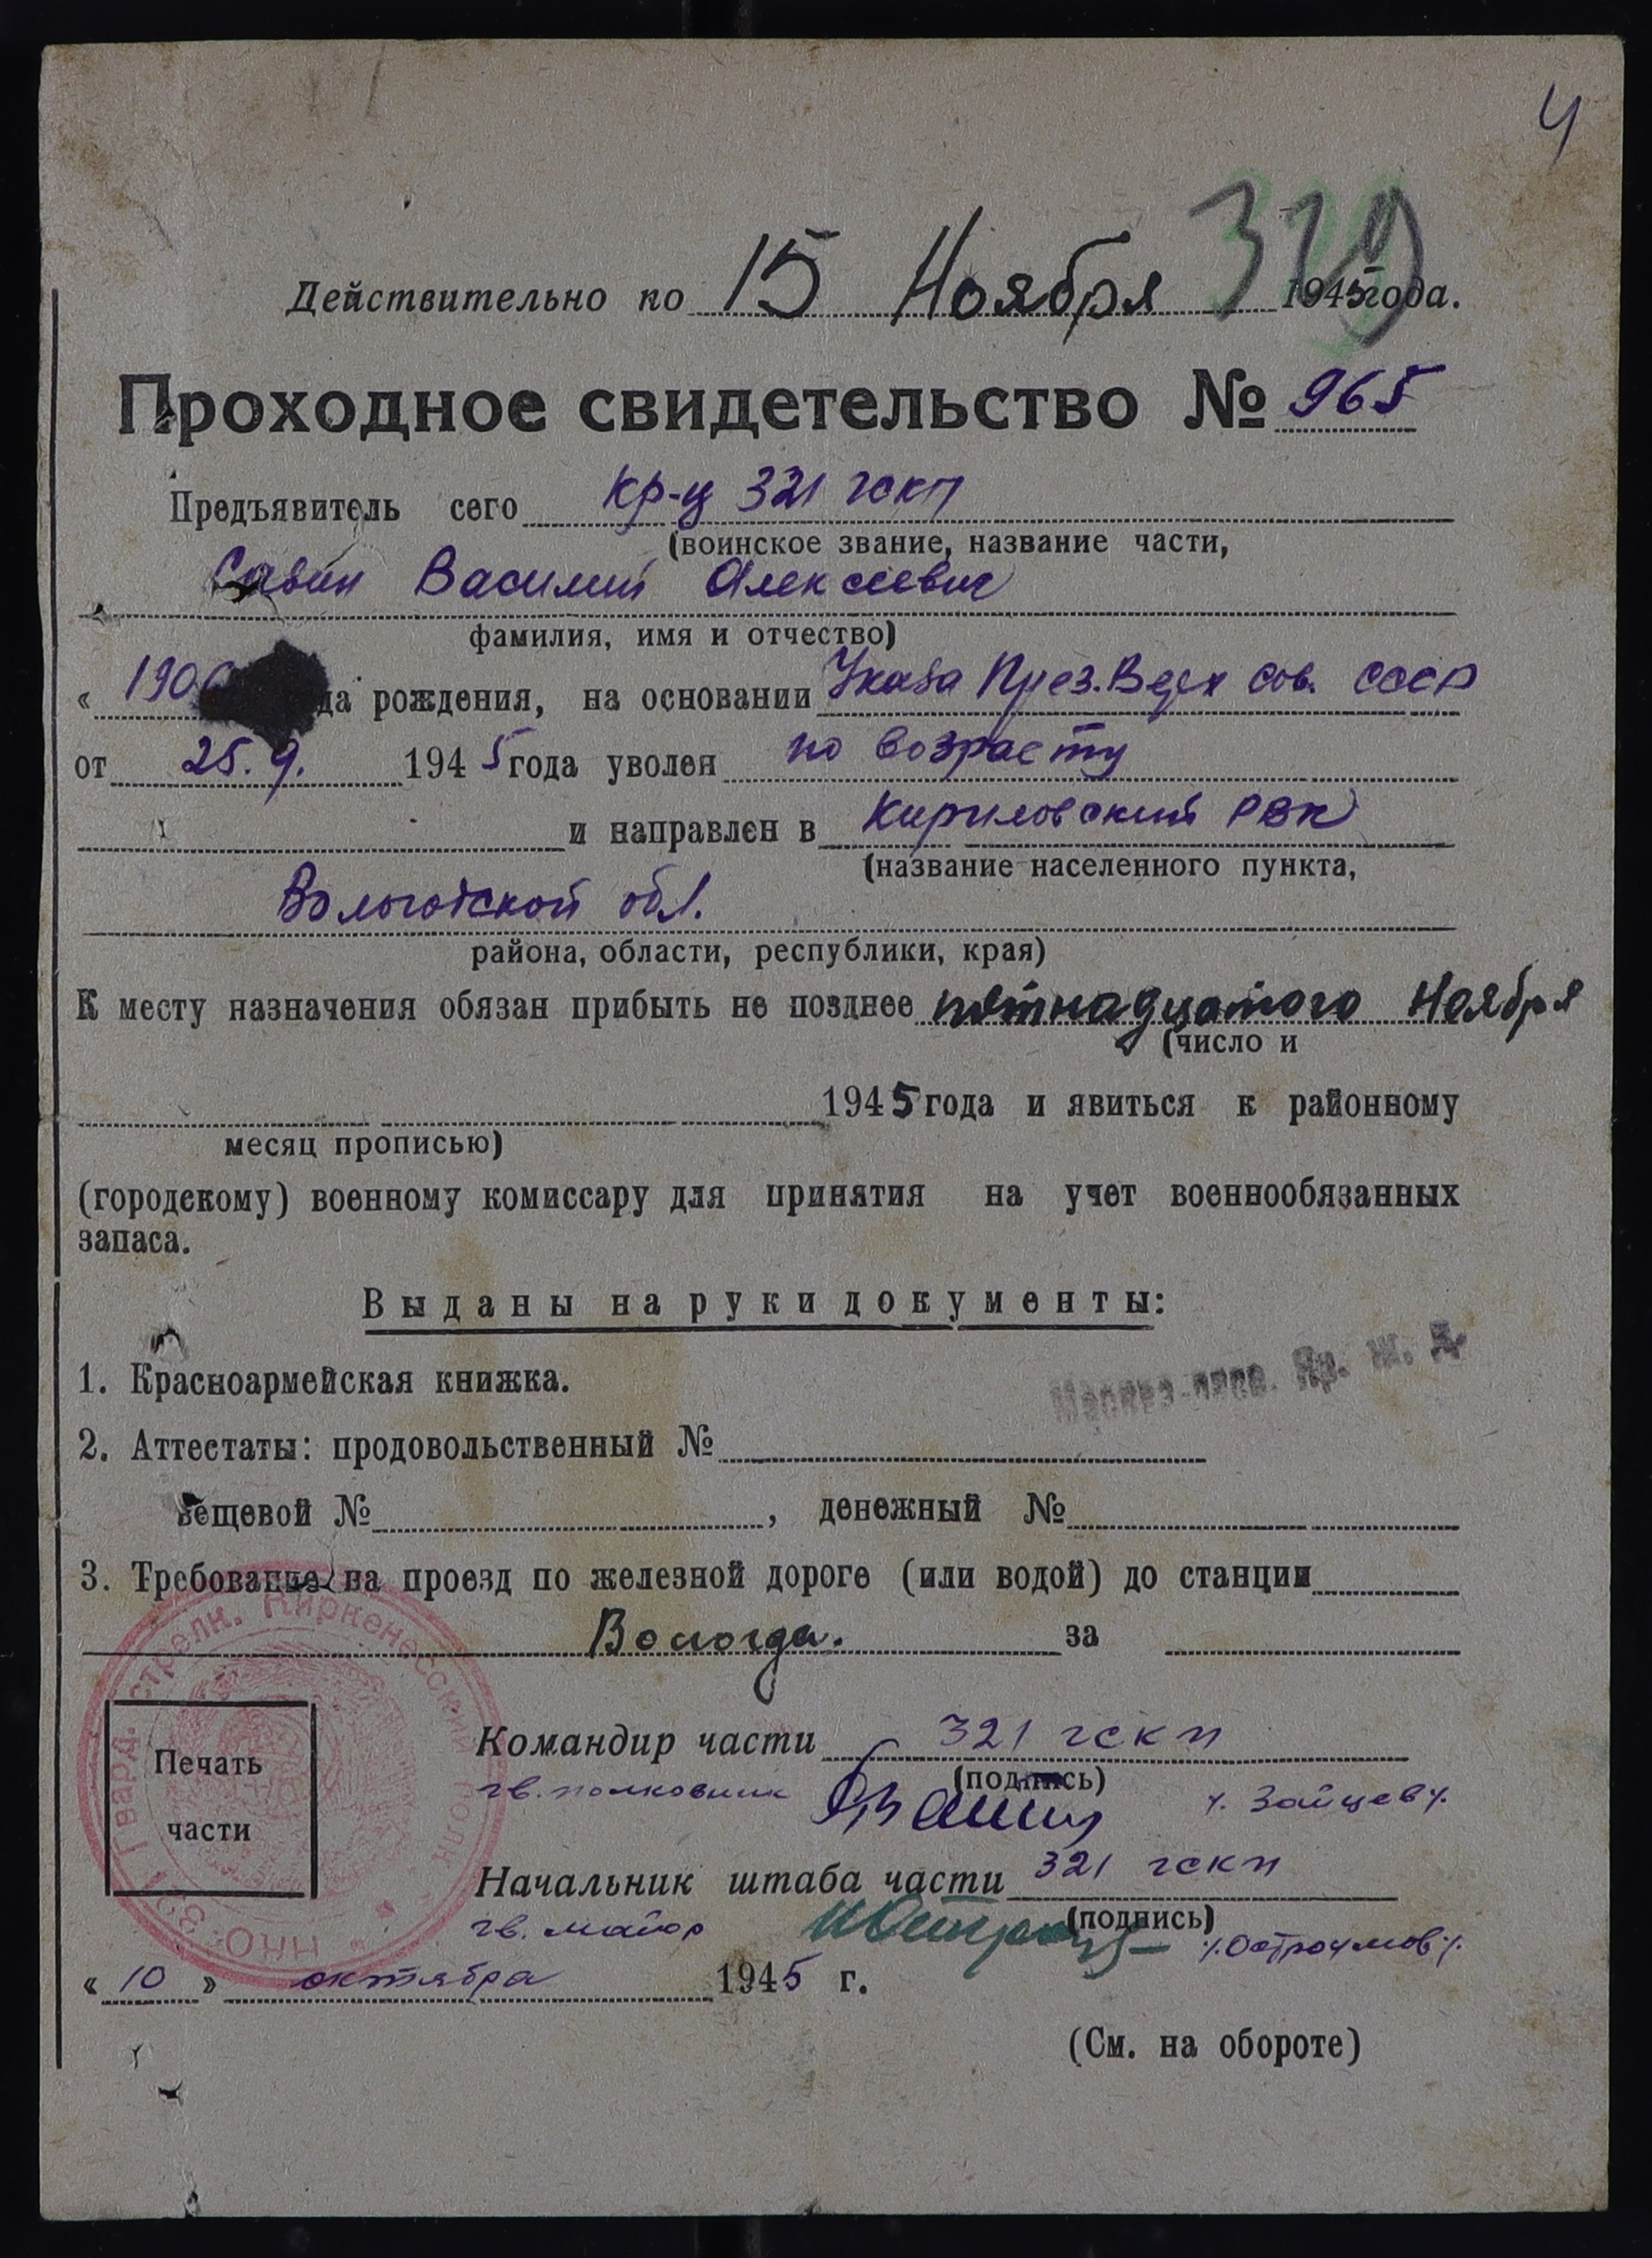 4
329
Действительно по 15 Ноября 1945 года.
Проходное свидетельство № 965
Предъявитель сего кр-ц 321 гскп
(воинское звание, название части,
Савин Василий Алексеевич
фамилия, имя и отчество)
« рождения, на основании Указа През. Верх Сов. СССР
от 25.9. 1945 года уволен по возрасту
и направлен в Кириловский РВК
(название населенного пункта,
Вологодской обл.
района, области, республики, края)
К месту назначения обязан прибыть не позднее пятнадцатого Ноября
(число и
1945 года и явиться к районному
месяц прописью)
(городскому) военному комиссару для принятия на учет военнообязанных
запаса.
Выданы на руки документы:
1. Красноармейская книжка.
Яр. ж. д.
2. Аттестаты: продовольственный №
вещевой № , денежный №
3. Требование на проезд по железной дороге (или водой) до станции
Вологда. за
НКО 321 Гвард. стрелк. Киркенесский полк
Печать
части
Командир части 321 гскп
(подпись)
гв. полковник /. Зайцев /.
Начальник штаба части 321 гскп
(подпись)
гв. майор /. Остроумов /.
« 10 » октября 1945 г.
(См. на обороте)